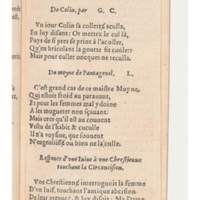 De Colin, par G. C.
Vn iour Colin sa collette accula,
En luy disant: Or mettez le cul là,
Puys de si pres se print à l'accoller,
Qu'au bricolant la goutte fit couller
Mais pour culler oncques ne reculla.
Du moyne de Pantagruel. L.
C'est grand cas de ce maistre Moyne,
Qui estoit froid au parauant,
Et pour les femmes mal ydoine
A les muguetter non sçauant:
Mais ores qu'il est au conuent
Vestu de l'habit & cuculle
Il n'a voysine, que souuent
N'enguaisne ou bien ne l'acculle.
Responce d'vne Iuifue à vne Chrestienne
touchant la Circoncision.
Vne Chrestienne interrogue la femme
D'vn Iuif, touchant l'antique abcision
De leur & luy disant, Ma Dame